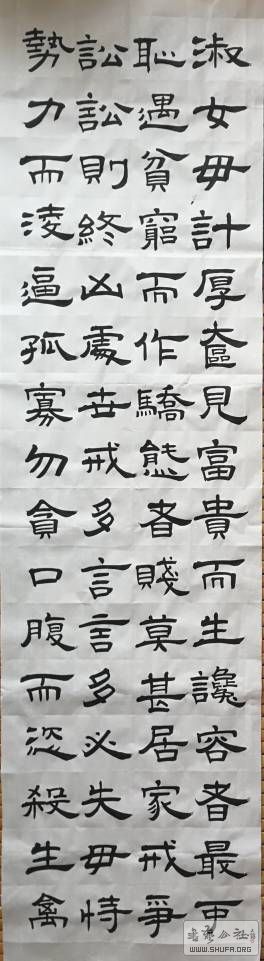 淑女毋計厚奩見富貴而生讒容者最可
恥遇貧窮而作驕態者賤莫甚居家戒爭
訟訟則終凶處世戒多言言多必失毋恃
勢力而淩逼孤寡勿貪口腹而恣殺生禽
WWW.SHUFA.ORG